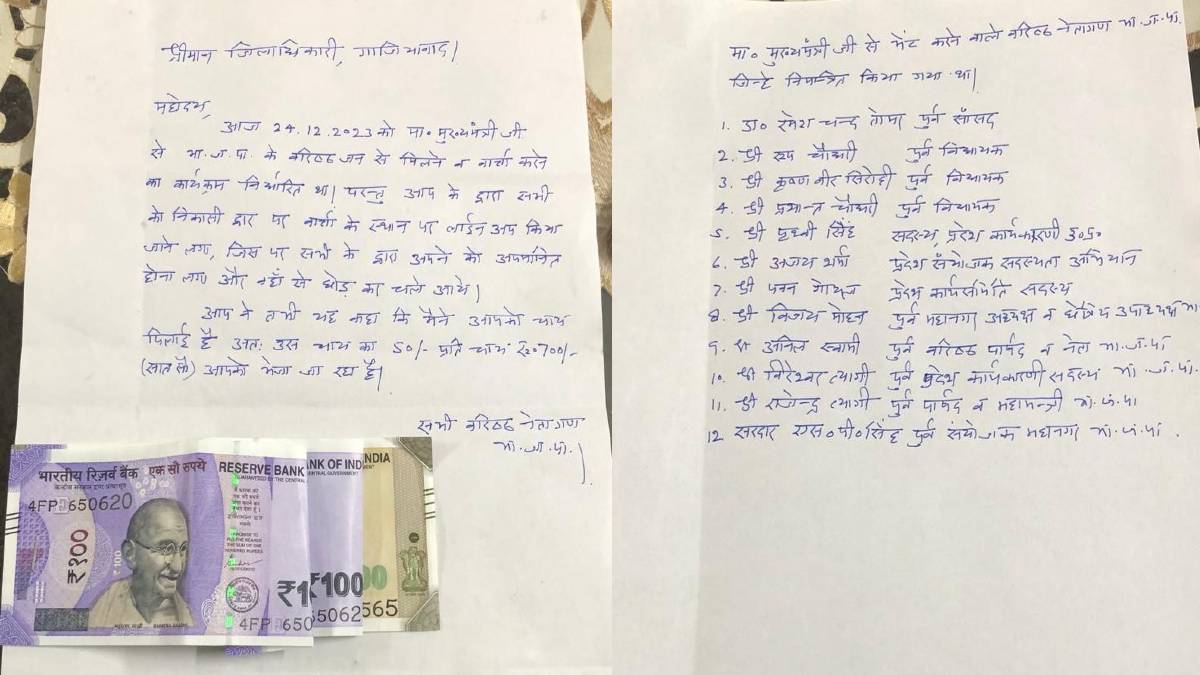 श्रीमान जिलाधिकारी, गाजियाबाद।
महोदय,
आज 24.12.2023 को मा० मुख्यमंत्री जी
से भा.ज.पा. के वरिष्ठ जन से मिलने व वार्ता करने
का कार्यक्रम निर्धारित था। परन्तु आप के द्वारा सभी
को निकासी द्वार पर वार्ता के स्थान पर लाईन अप किया
जाने लगा, जिस पर सभी के द्वारा अपने को अपमानित
होना लगा और वहाँ से छोड़ कर चले आये।
आप ने तभी यह कहा कि मैने आपको चाय
पिलाई है अतः उस चाय का 50/- प्रति चाय Rs.700/-
(सात सौ) आपको भेजा जा रहा है।
सभी वरिष्ठ नेतागण
भा.ज.पा.।
भारतीय रिज़र्व बैंक एक सौ रुपये RESERVE BANK
ANK OF INDIA
INDIA
GUARANTEED BY THE CENTRAL
4FP 650620
₹१००
₹100
₹1
₹100
00
4FP 650
65062
565
मा० मुख्यमंत्री जी से भेंट करने वाले वरिष्ठ नेतागण भा.ज.पा.
जिन्हे निमन्त्रित किया गया था।
1. डा० रमेश चन्द तोमर पुर्व सांसद
2. श्री रूप चौधरी पुर्व विधायक
3. श्री कृष्ण वीर सिरोही पुर्व विधायक
4. श्री प्रशान्त चौधरी पुर्व विधायक
5. श्री पृथ्वी सिंह सदस्य, प्रदेश कार्यकारणी उ०प्र०
6. श्री अजय शर्मा प्रदेश संयोजक सदस्यता अभियान
7. श्री पवन गोयल प्रदेश कार्यसमिति सदस्य
8. श्री विजय मोहन पुर्व महानगर अध्यक्ष व क्षेत्रिय उपाध्यक्ष
9. श्री अनिल स्वामी पुर्व वरिष्ठ पार्षद व नेता भा.ज.पा.
10. श्री विरेश्वर त्यागी पुर्व प्रदेश कार्यकारणी सदस्य भा.ज.पा.
11. श्री राजेन्द्र त्यागी पुर्व पार्षद व महामन्त्री भा.ज.पा
12 सरदार एस०पी०सिंह पुर्व संयोजक महानगर भा.ज.पा.